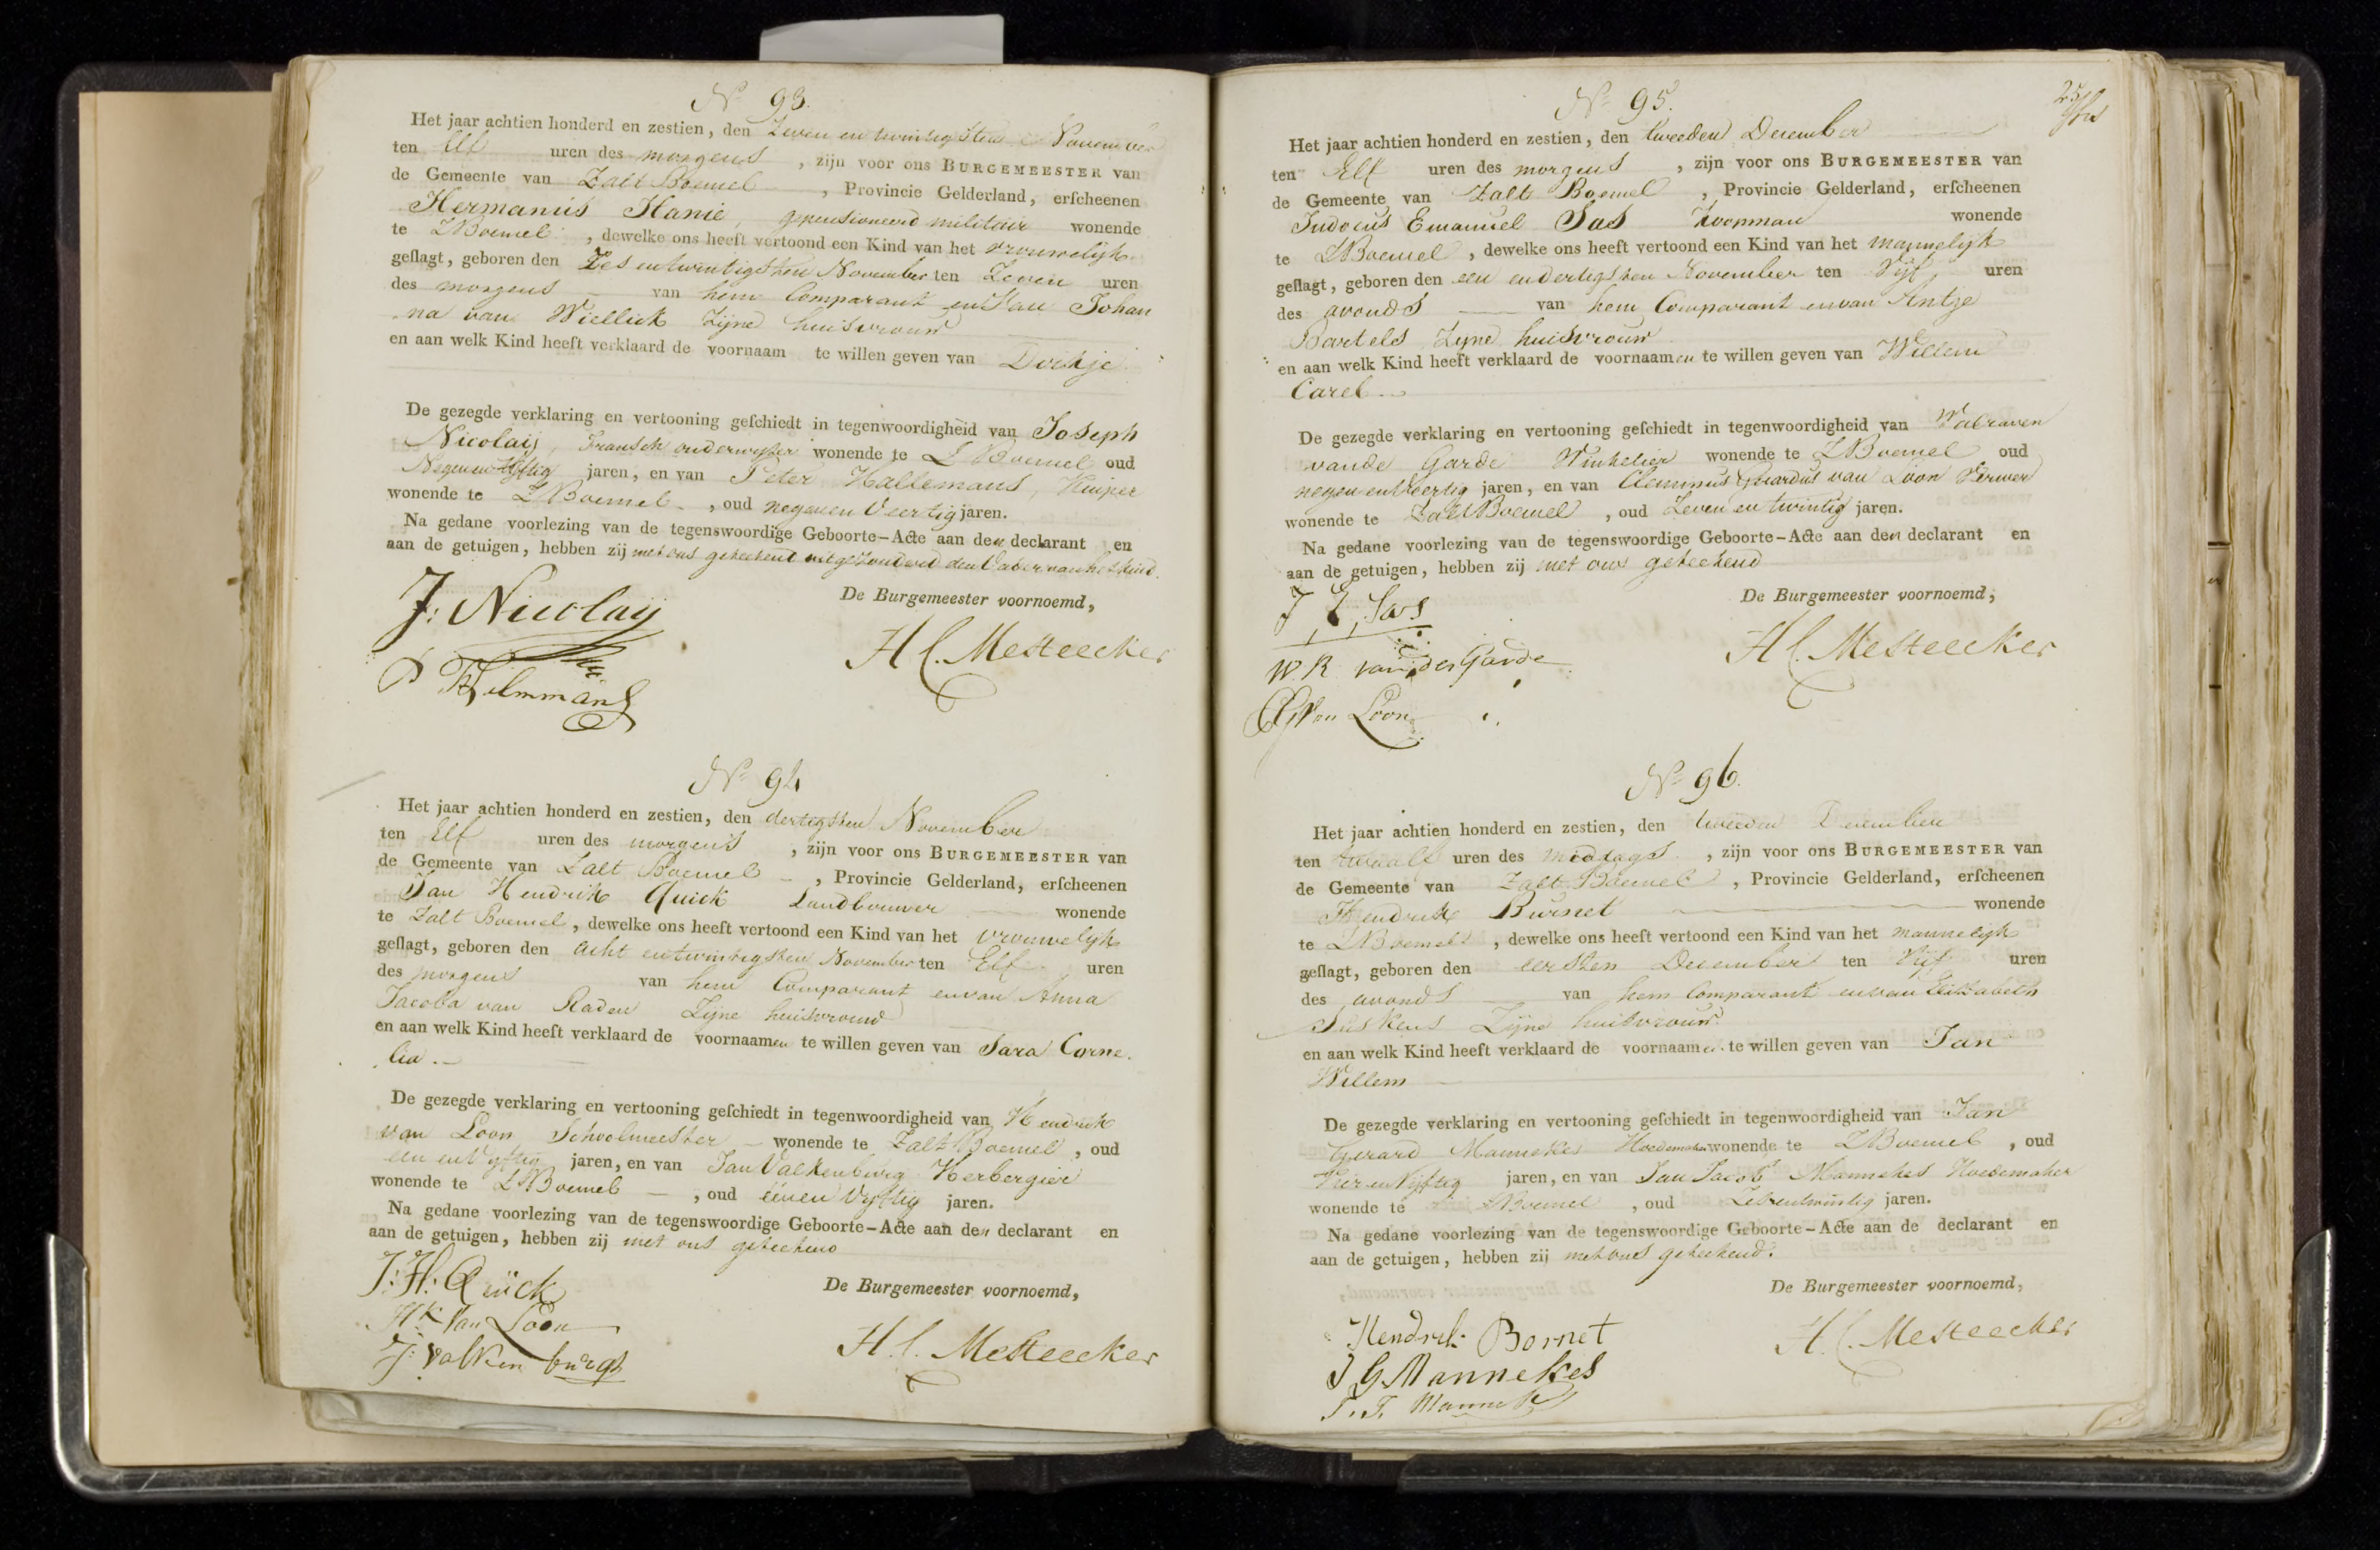 No 93.
Het jaar achtien honderd en zestien, den Zeven en twintigsten November
ten Elf uren des morgens, zijn voor ons BURGEMEESTER van
de Gemeente van Zalt Boemel, Provincie Gelderland, erscheenen
Hermanus Hanie, gepensioneerd militair wonende
te ZBoemel, dewelke ons heeft vertoond een Kind van het vrouwelijk
geslagt, geboren den Zes en twintigsten November ten Zeven uren
des morgens van hem Comparant en van Johan
na van Wiellick Zijne huisvrouw
en aan welk Kind heeft verklaard de voornaam te willen geven van Dirkje
De gezegde verklaring en vertooning geschiedt in tegenwoordigheid van Joseph
Nicolaij, Fransch onderwijzer wonende te ZBoemel oud
Negen en Vijftig jaren, en van Peter Hallemans, Kuiper
wonende te ZBoemel, oud negen en Veertig jaren.
Na gedane voorlezing van de tegenswoordige Geboorte-Acte aan den declarant en
aan de getuigen, hebben zij met ons geteekend uitgezonderd den Vader van het kind.
De Burgemeester voornoemd,
J: Nicolaij
H C. Mesteecker
No 94
Het jaar achtien honderd en zestien, den dertigsten November
ten Elf uren des morgens, zijn voor ons BURGEMEESTER van
de Gemeente van Zalt Boemel, Provincie Gelderland, erscheenen
Jan Hendrik Quick Landbouwer wonende
te Zalt Boemel, dewelke ons heeft vertoond een Kind van het vrouwelijk
geslagt, geboren den acht en twintigsten November ten Elf uren
des morgens van hem Comparant en van Anna
Jacoba van Raden Zijne huisvrouw
en aan welk Kind heeft verklaard de voornaamen te willen geven van Sara Corne
lia.
De gezegde verklaring en vertooning geschiedt in tegenwoordigheid van Hendrik
van Loon Schoolmeester wonende te Zalt Boemel, oud
een en Vijftig jaren, en van Jan Valkenburg Herbergier
wonende te ZBoemel, oud een en Vijftig jaren.
Na gedane voorlezing van de tegenswoordige Geboorte-Acte aan den declarant en
aan de getuigen, hebben zij met ons geteekend
De Burgemeester voornoemd,
J: H: Quick
Hk Van Loon
J: Valkenburgh
H. C. Mesteecker
No 95.
Het jaar achtien honderd en zestien, den tweeden December
ten Elf uren des morgens, zijn voor ons BURGEMEESTER van
de Gemeente van Zalt Boemel, Provincie Gelderland, erscheenen
Judocus Emanuel Sas Koopman wonende
te ZBoemel, dewelke ons heeft vertoond een Kind van het mannelijk
geslagt, geboren den een en dertigsten November ten Vijf uren
des avonds van hem Comparant en van Antje
Bartels Zijne huisvrouw
en aan welk Kind heeft verklaard de voornaamen te willen geven van Willem
Carel
De gezegde verklaring en vertooning geschiedt in tegenwoordigheid van Walraven
vande Garde Winkelier wonende te ZBoemel oud
negen en Veertig jaren, en van Gerardus van Loon Verwer
wonende te Zalt Boemel, oud Zeven en twintig jaren.
Na gedane voorlezing van de tegenswoordige Geboorte-Acte aan den declarant en
aan de getuigen, hebben zij met ons geteekend
De Burgemeester voornoemd,
J, E, Sas
W. R van der Garde
van Loon
H C. Mesteecker
No 96.
Het jaar achtien honderd en zestien, den tweeden December
ten twaalf uren des middags, zijn voor ons BURGEMEESTER van
de Gemeente van Zalt Boemel, Provincie Gelderland, erscheenen
Hendrik Burnet wonende
te ZBoemel, dewelke ons heeft vertoond een Kind van het mannelijk
geslagt, geboren den eersten December ten Vijf uren
des avonds van hem Comparant en van Elizabeth
Suskens Zijne huisvrouw
en aan welk Kind heeft verklaard de voornaamen te willen geven van Jan
Willem
De gezegde verklaring en vertooning geschiedt in tegenwoordigheid van Jan
Gerard Mannekes Hoedemaker wonende te ZBoemel, oud
Vier en Vijftig jaren, en van Jan Jacob Mannekes Hoedemaker
wonende te ZBoemel, oud Zes en twintig jaren.
Na gedane voorlezing van de tegenswoordige Geboorte-Acte aan de declarant en
aan de getuigen, hebben zij met ons geteekend.
De Burgemeester voornoemd,
Hendrik Bornet
J G Mannekes
H. C. Mesteecker